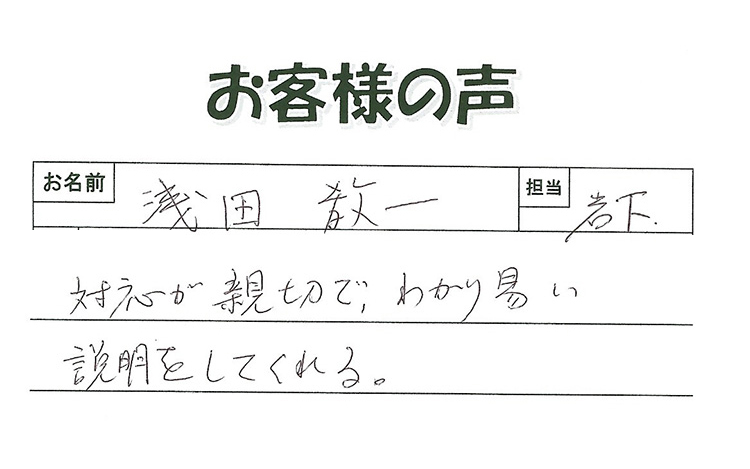 お客様の声
お名前 浅田 敬一 担当 岩下
対応が親切で、わかり易い
説明をしてくれる。